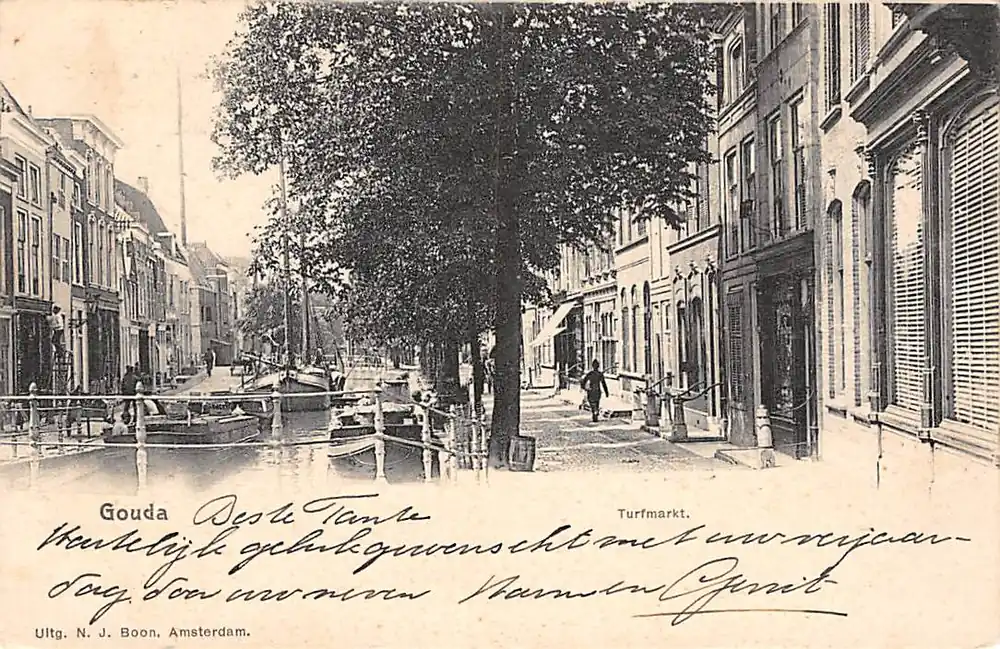 Gouda
Beste Tante
Turfmarkt.
Hartelijk geluk gewenscht met uw verjaar-
dag. door uw neven Harm en Gerrit
Uitg. N. J. Boon, Amsterdam.